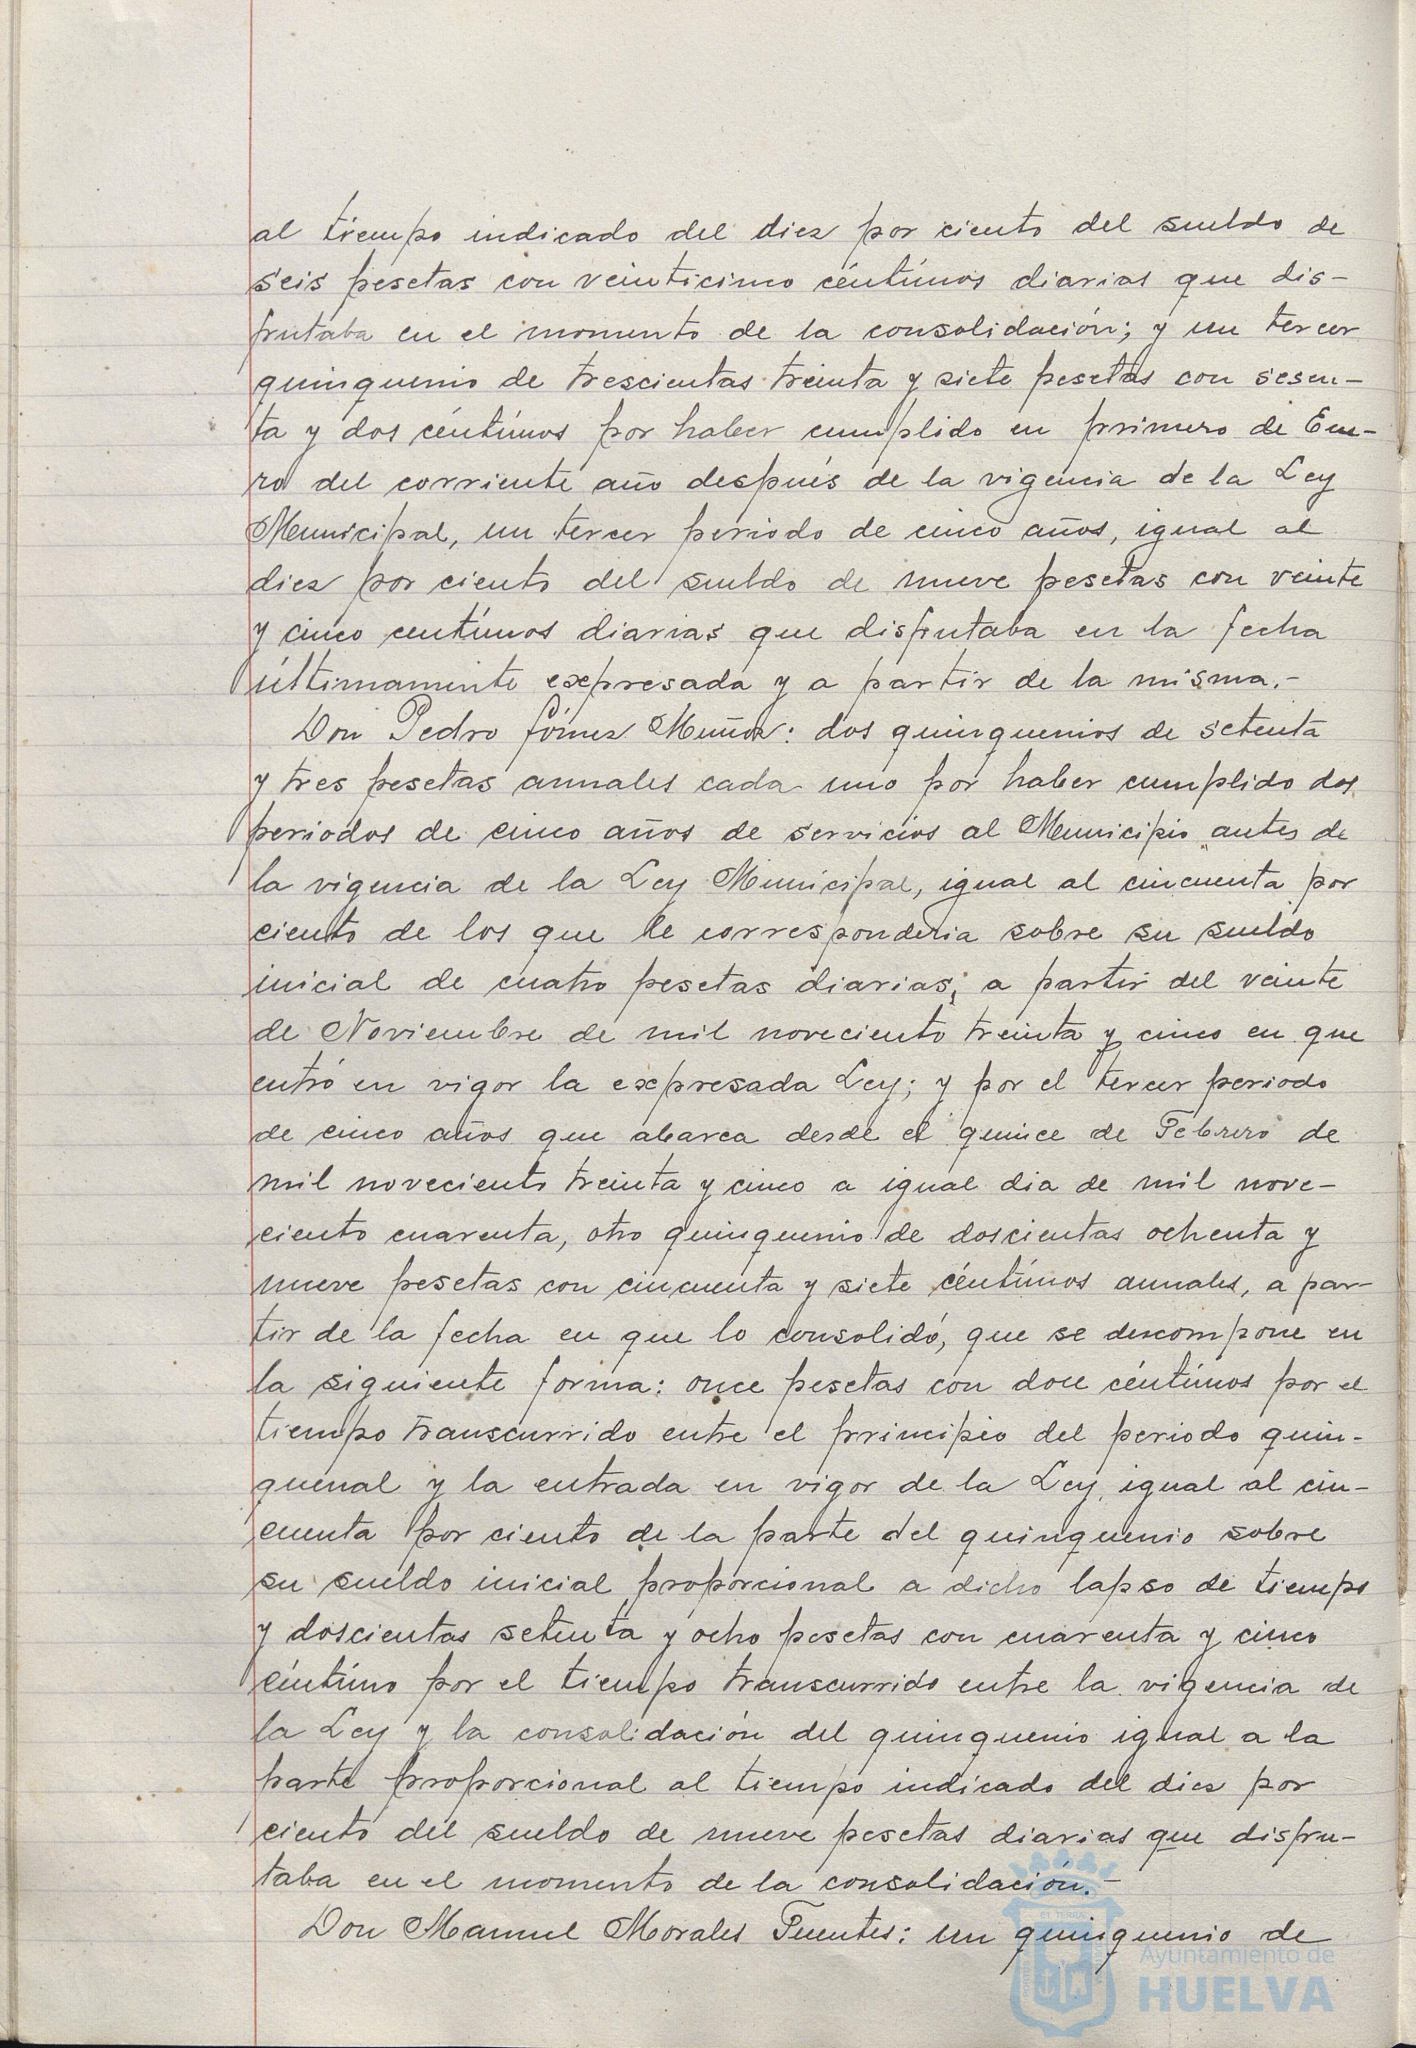 al tiempo indicado del diez por ciento del sueldo de
seis pesetas con veinticinco céntimos diarias que dis-
frutaba en el momento de la consolidación; y un tercer
quinquenio de trescientas treinta y siete pesetas con sesen-
ta y dos céntimos por haber cumplido en primero de Ene-
ro del corriente año después de la vigencia de la Ley
Municipal, un tercer periodo de cinco años, igual al
diez por ciento del sueldo de nueve pesetas con veinte
y cinco centimos diarias que disfrutaba en la fecha
últimamente expresada y a partir de la misma.-
Don Pedro Gómez Muñoz: dos quinquenios de setenta
y tres pesetas anuales cada uno por haber cumplido dos
periodos de cinco años de servicios al Municipio antes de
la vigencia de la Ley Municipal, igual al cincuenta por
ciento de los que le corresponderia sobre su sueldo
inicial de cuatro pesetas diarias, a partir del veinte
de Noviembre de mil noveciento treinta y cinco en que
entró en vigor la expresada Ley; y por el tercer periodo
de cinco años que abarca desde el quince de Febrero de
mil noveciento treinta y cinco a igual dia de mil nove-
ciento cuarenta, otro quinquenio de doscientas ochenta y
nueve pesetas con cincuenta y siete céntimos anuales, a par-
tir de la fecha en que lo consolidó, que se descompone en
la siguiente forma: once pesetas con doce céntimos por el
tiempo transcurrido entre el principio del periodo quin-
quenal y la entrada en vigor de la Ley, igual al cin-
cuenta por ciento de la parte del quinquenio sobre
su sueldo inicial proporcional a dicho lapso de tiempo
y doscientas setenta y ocho pesetas con cuarenta y cinco
céntimo por el tiempo transcurrido entre la vigencia de
la Ley y la consolidación del quinquenio igual a la
parte proporcional al tiempo indicado del diez por
ciento del sueldo de nueve pesetas diarias que disfru-
taba en el momento de la consolidación.-
Don Manuel Morales Fuentes: un quinquenio de
Ayuntamiento de
HUELVA